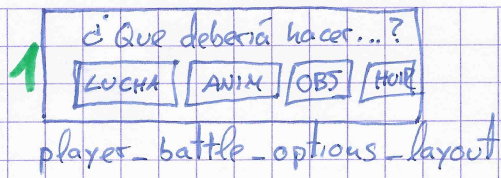 ¿Que debería hacer...?
1
LUCHA ANIM OBJ HUIR
player_battle_options_layout